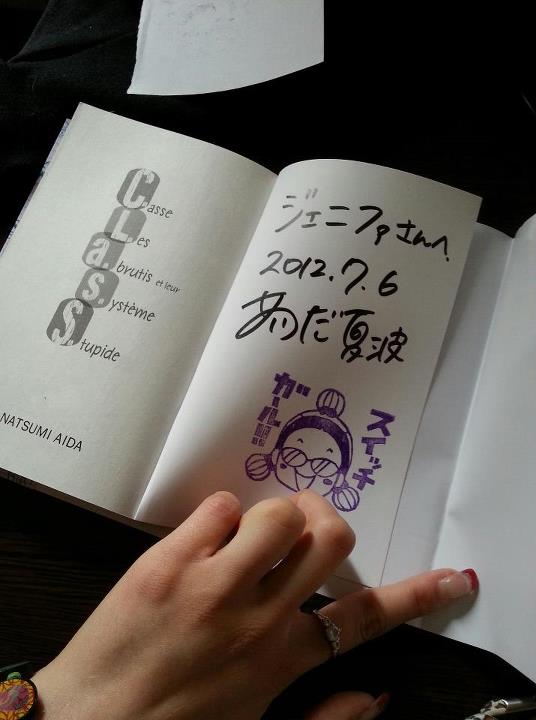 Casse
Les
abrutis et leur
Système
Stupide
NATSUMI AIDA
ジェニファさんへ
2012.7.6
あいだ夏波
スイッチ
ガール!!